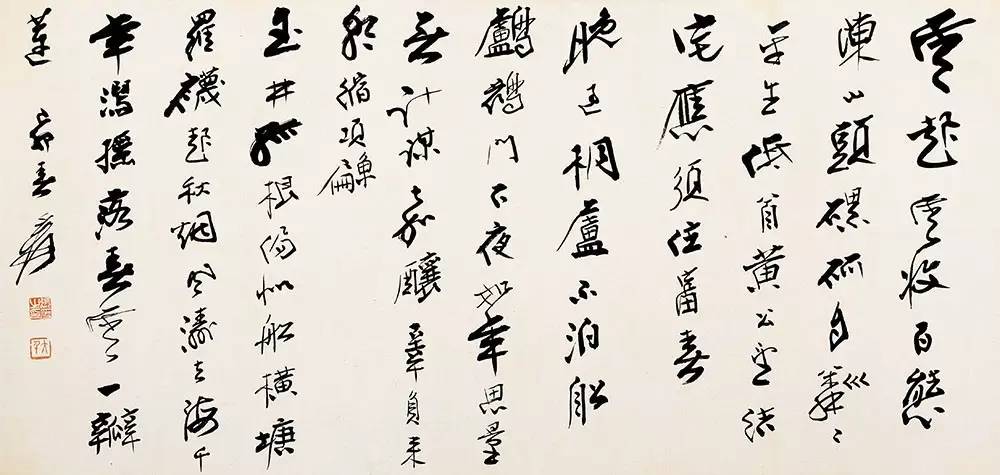 雲起雲收百態
陳山頭磥砢自嶙〻
平生低首黃公望結
宅應須住富春
晚過桐廬不泊船
鸕鶿門下夜如年思量
無計謀家釀辜負來
船縮項鯿
玉井根似船橫塘
羅襪起秋烟風濤海千
年瀉搖落春雲一瓣
蓮 春 爰